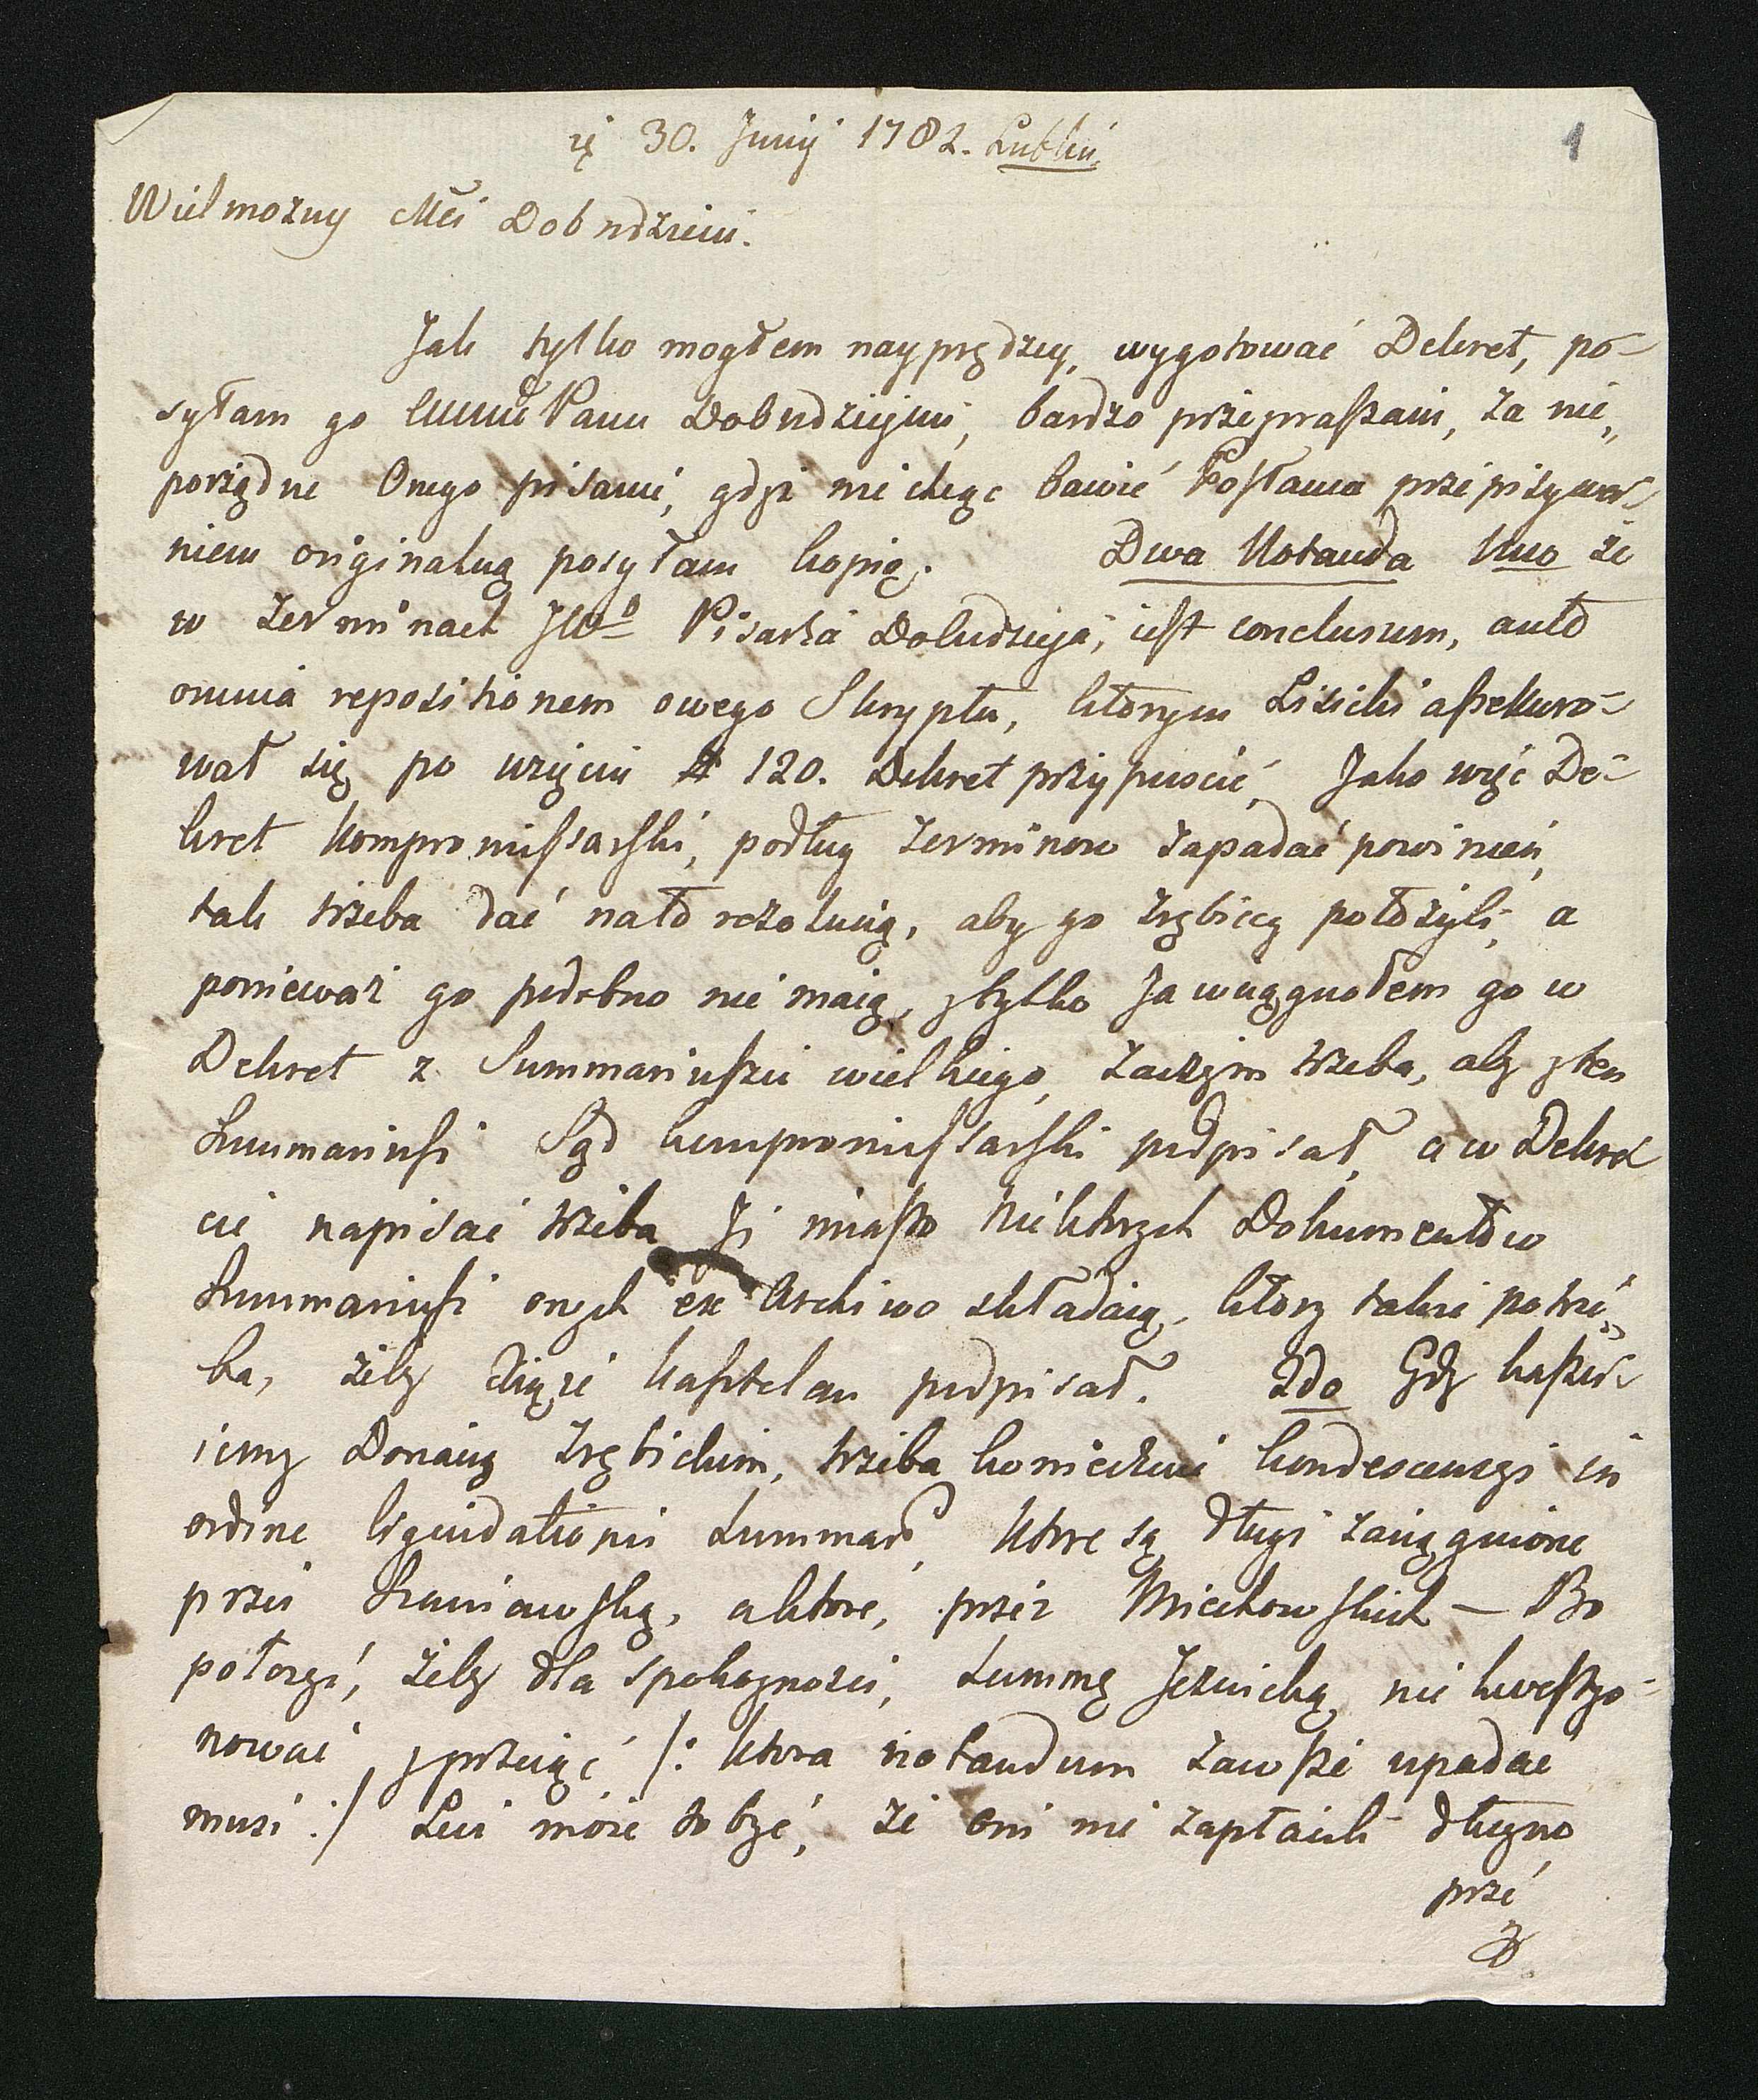 30. Junij 1782. Lublin
1
Wielmożny Mci Dobrodzieiu.
Jak tylko mogłem nayprędzey, wygotować Dekret, po-
syłam go Panu Dobrodziejowi, bardzo przepraszam, za nie„
porządne Onego pisanie, gdyż nie chcąc bawić Posłańca przepisywa-
niem originalną posyłam kopią. Dwa Notanda 1mo że
w Terminach Pisarza Dobrodzieja, iest conclusum, antę
omnia repositionem owego Skryptu, ktorym Lisicki assekuro-
wał się po wzięciu # 120. Dekret przypuścić, Jako więc De-
kret Kompromissarski, podług Terminow zapadać powinien,
tak trzeba dać natō rezolucią, aby go Zrębiccy położyli, a
ponieważ go podobno nie maią, ytylko Ja wciągnołem go w
Dekret z Summariuszu wielkiego, zaczym trzeba, aby yten
Summariusz Sąd kompromissarski podpisał, a w Dekre
cie napisać trzeba Jż miasto niektorych Dokumentow
Summariusz onych ex Archivo składaią, ktory także potrze„
ba, żeby Xiąże Kasztelan podpisał. 2do Gdy kassu-
iemy Donacią Zrębickim, trzeba koniecznie kondescensyi in
ordine liquidationis Summar, ktore są długi zaciągnione
przez Szaniawską, aktore, przez Miechowskich — Bo
położyć, żeby dla spokoyności, Summę Jezuicką nie kwestyo-
nować yprzyiąć /: ktora notandum zawsze upadać
musi :/ Lecz może to być, że oni nie zapłacili długow
prze